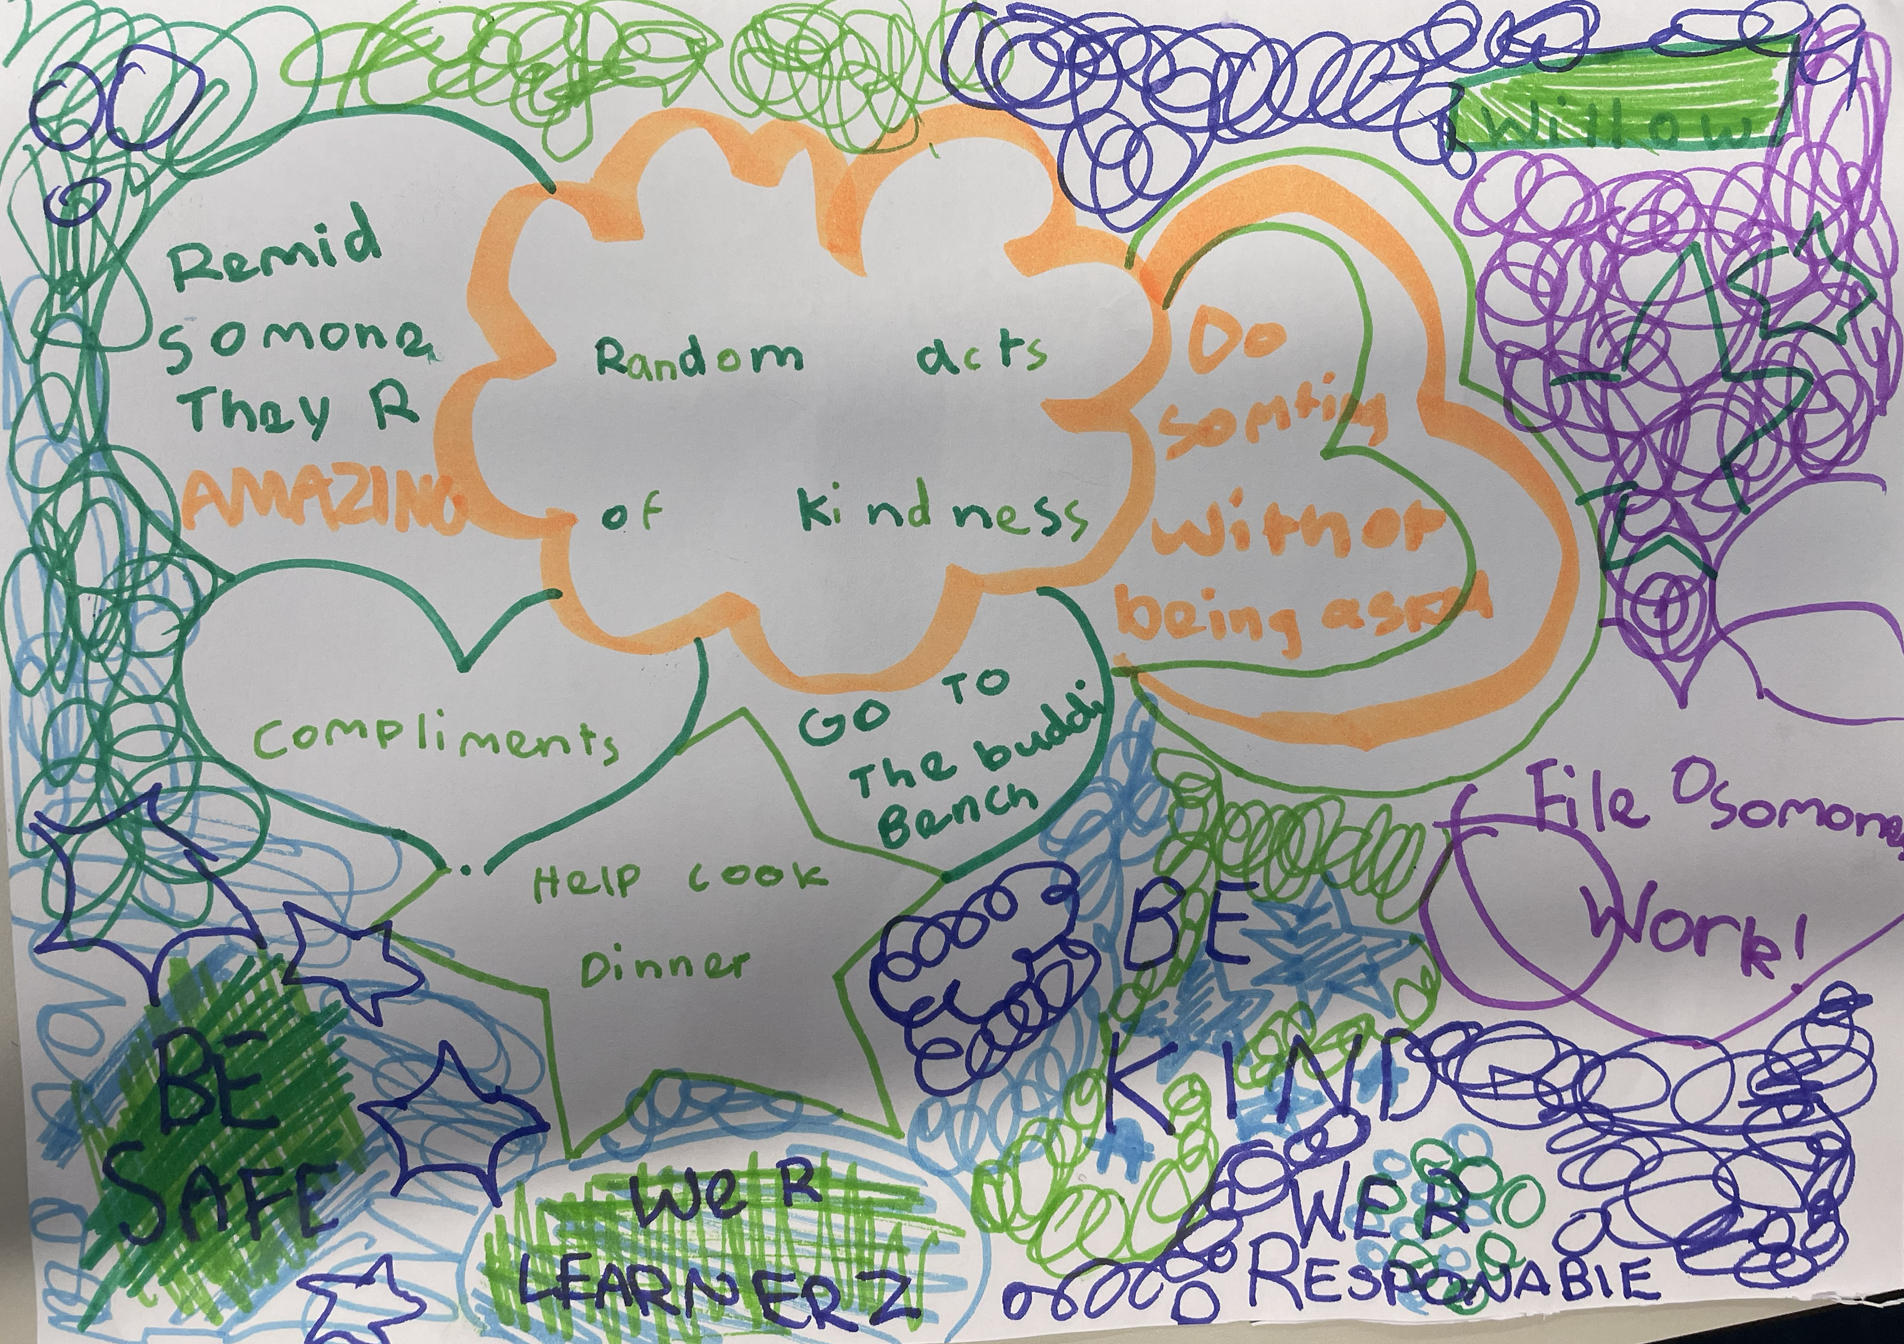 Willow
Random acts
of kindness
Remid
somone
They R
AMAZING
Do
somting
withot
being asked
Compliments
GO TO
The buddi
Bench
Help cook
Dinner
File Osomone
Work!
BE
KIND
BE
SAFE
We R
LEARNERZ
WE R
RESPONABlE